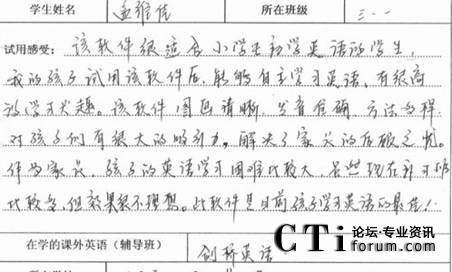 学生姓名 孟维佳 所在班级 三·一
试用感受: 该软件很适合小学生初学英语的学生,
我的孩子试用该软件后,能够自主学习英语,有很高
的学习兴趣。该软件图画清晰,发音准确,方法多样
对孩子们有很大的吸引力。解决了家长的后顾之忧。
作为家长,孩子的英语学习困难比较大,虽然现在补习班
比较多,但效果很不理想。此软件是目前孩子学习英语的最佳!
在学的课外英语(辅导班) 剑桥英语
CTi 论坛·专业资讯
forum.com